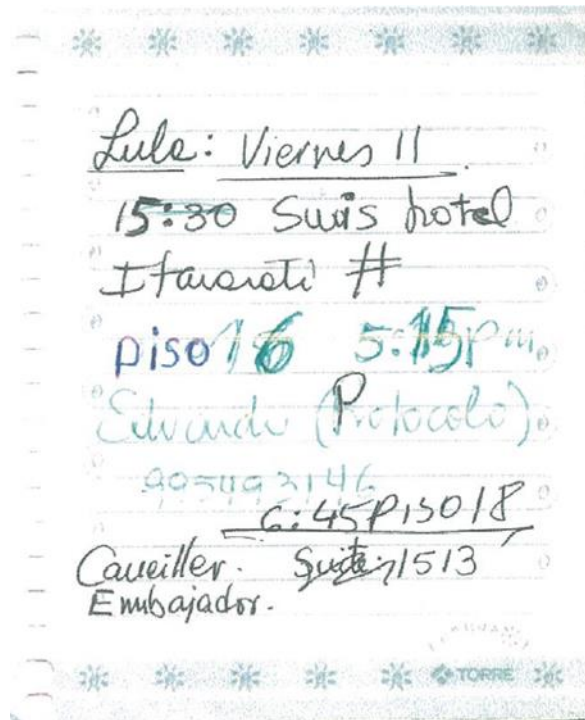 Lula: Viernes 11
15:30 Suis hotel
Itamarati #
piso 16 5:15pm
Eduardo (Protocolo)
995493146
6:45 Piso 18
Canciller. Suite: 1513
Embajador.
TORRE